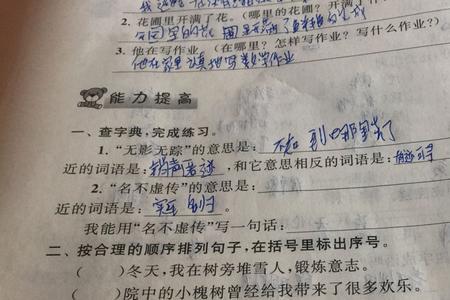 2. 花圃里开满了花。（哪里的花圃？开满了
3. 他在写作业 （在哪里？怎样写作业？写什么作业？）
他在家里认真地写数学作业
能力提高
一、查字典，完成练习。
1. “无影无踪”的意思是： 不知到哪里去了
近的词语是：销声匿迹，和它意思相反的词语是：有迹可寻
2. “名不虚传”的意思是：
近的词语是： 。
我能用“名不虚传”写一句话：
二、按合理的顺序排列句子，在括号里标出序号。
（ ）冬天，我在树旁堆雪人，锻炼意志。
（ ）院中的小槐树曾经给我带来了很多欢乐。